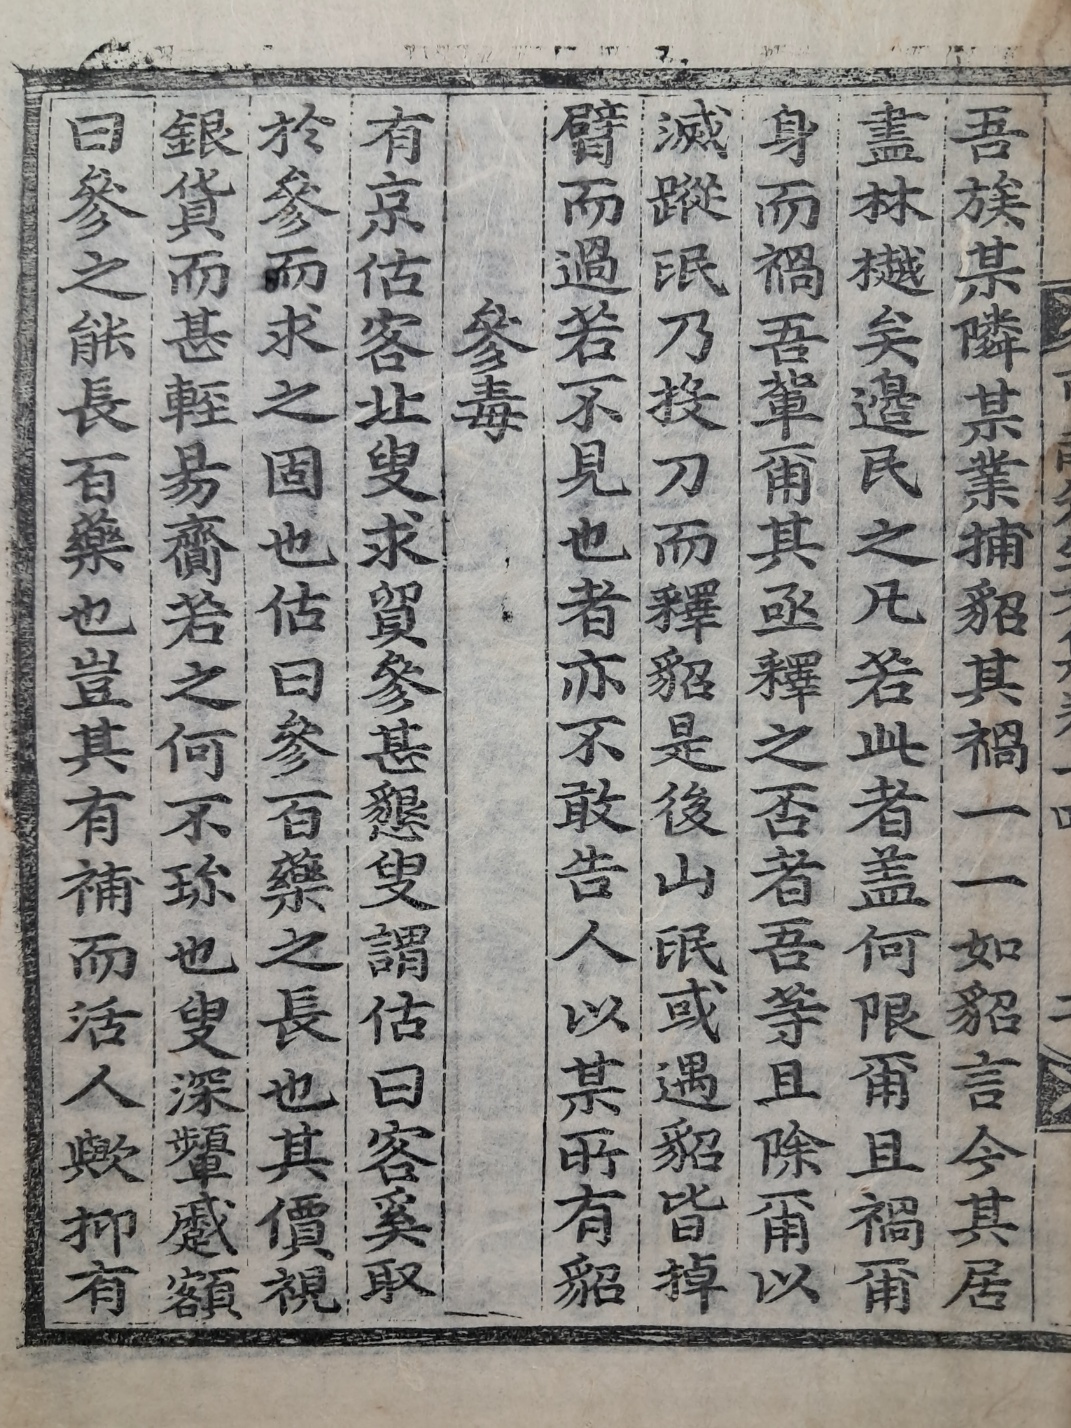 吾族某隣某業捕貂其禍一一如貂言今其居
盡林樾矣邊民之凡若此者盖何限爾且禍爾
身而禍吾輩爾其亟釋之否者吾等且除爾以
滅蹤氓乃投刀而釋貂是後山氓或遇貂皆掉
臂而過若不見也者亦不敢告人以某所有貂
參毒
有京估客止叟求貿參甚懇叟謂估曰客奚取
於參而求之固也估曰參百藥之長也其價視
銀貨而甚輕易齎若之何不珎也叟深顰蹙額
曰參之能長百藥也豈其有補而活人歟抑有